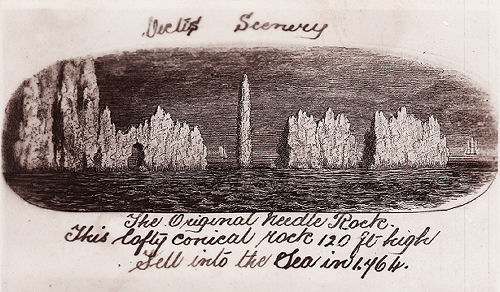 Vectis Scenery
The Original Needle Rock.
This lofty conical rock 120 ft high
Fell into the Sea in 1764.